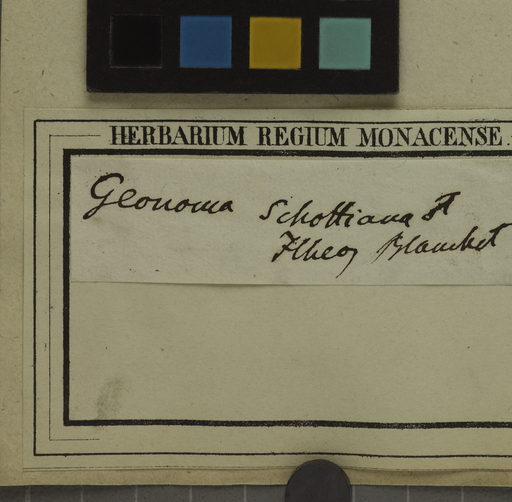 HERBARIUM REGIUM MONACENSE.
Geonoma Schottiana
Ilheos Blanchet